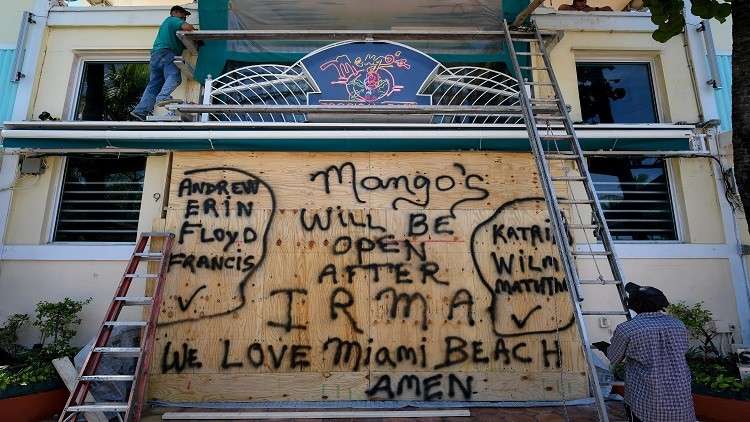 Mango's
9
ANDREW
ERIN
FLOYD
FRANCIS
✓
Mango's
WILL BE
OPEN
AFTER
IRMA
KATRI
WILM
MATTH
✓
WE LOVE Miami BEACH
AMEN